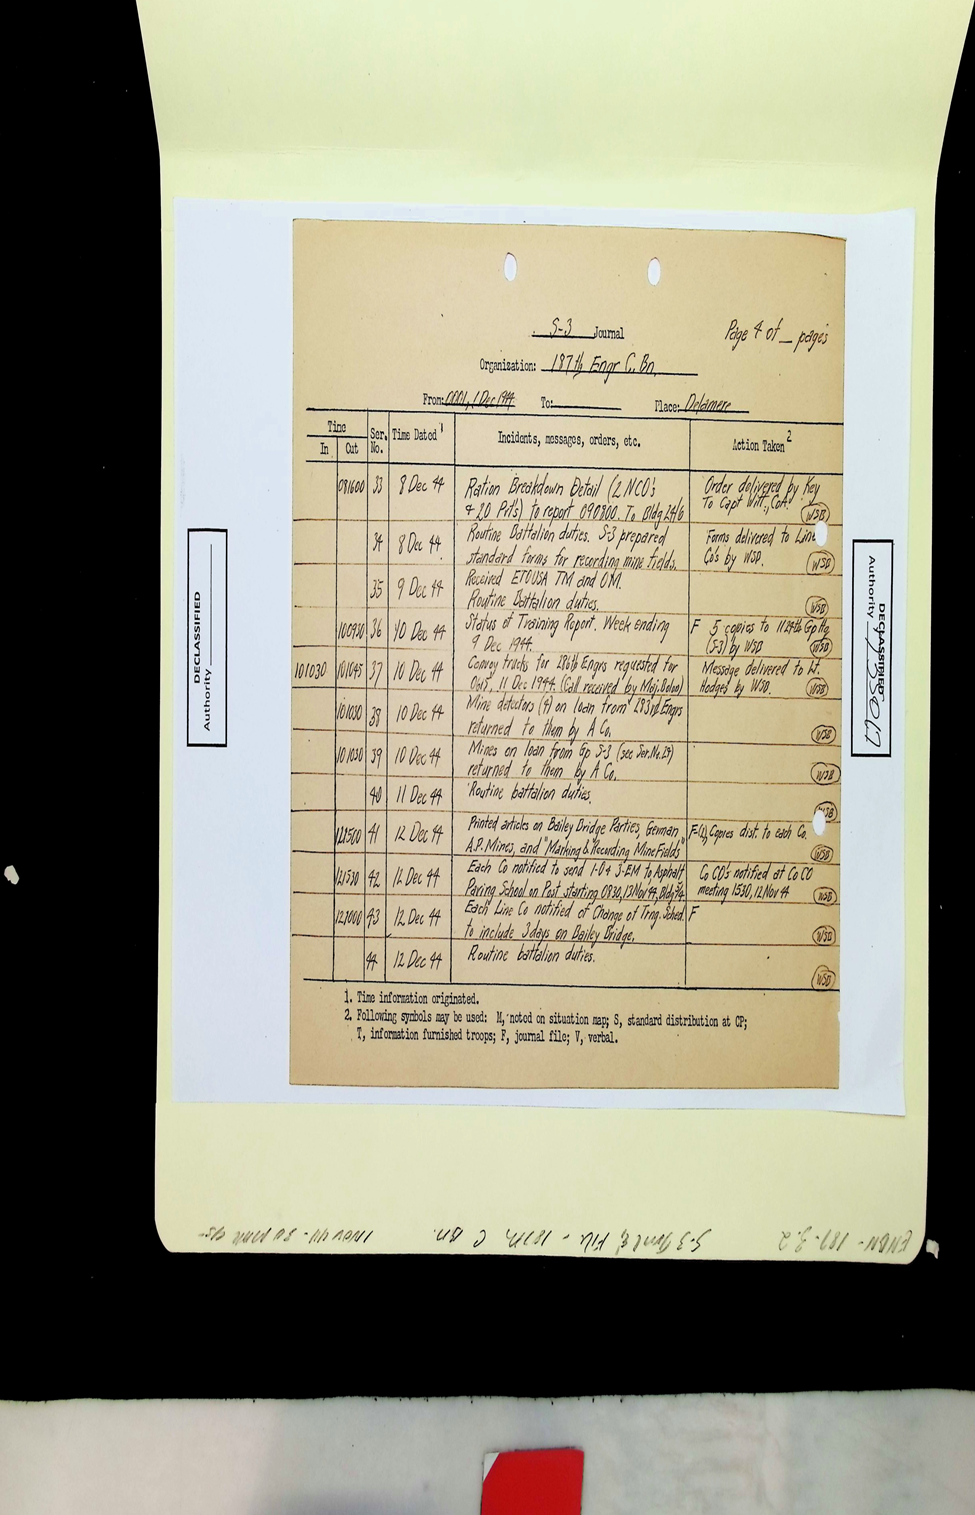 S-3 Journal
Page 4 of _ pages
Organization: 187th Engr C. Bn.
From: 0001, 1 Dec 1944 To: Place: Delamere
Time
In Out
Ser. No.
Time Dated 1
Incidents, messages, orders, etc.
Action Taken 2
081600 33 8 Dec 44 Ration Breakdown Detail (2 NCO's Order delivered by Key
& 20 Pvt's) to report 090800. To Bldg 24/6 To Capt Witt, Com. WSB
34 8 Dec 44 Routine Battalion duties. S-3 prepared Forms delivered to Line
standard forms for recording mine fields. Co's by WSB. WSB
35 9 Dec 44 Received ETOUSA TM and OM.
Routine Battalion duties. WSB
100930 36 10 Dec 44 Status of Training Report. Week ending F 5 copies to 1124th Gp Hq
9 Dec 1944. (S-3) by WSB WSB
101030 101045 37 10 Dec 44 Convoy trucks for 286th Engrs requested for Message delivered to Lt.
0615, 11 Dec 1944. (Call received by Maj. Bolon) Hodges by WSB. WSB
101030 38 10 Dec 44 Mine detectors (9) on loan from 283rd Engrs
returned to them by A Co. WSB
101030 39 10 Dec 44 Mines on loan from Gp S-3 (see Ser. No. 29)
returned to them by A Co. WSB
40 11 Dec 44 Routine battalion duties. WSB
121500 41 12 Dec 44 Printed articles on Bailey Bridge Parties, German F-(1), Copies dist. to each Co.
A.P. Mines, and "Marking & Recording Mine Fields" WSB
121530 42 12 Dec 44 Each Co notified to send 1-O & 3-EM To Asphalt Co CO's notified at Co CO
Paving School on Post starting 0830, 13 Nov 44, Bldg meeting 1530, 12 Nov 44 WSB
122000 43 12 Dec 44 Each Line Co notified of Change of Trng. Sched. F
to include 3 days on Bailey Bridge. WSB
44 12 Dec 44 Routine battalion duties. WSB
1. Time information originated.
2. Following symbols may be used: M, noted on situation map; S, standard distribution at CP;
T, information furnished troops; F, journal file; V, verbal.
DECLASSIFIED
Authority
DECLASSIFIED
Authority
ENBN - 187 - 3.2 S-3 Jnl & File - 187th C Bn. 1 Nov 44 - 30 Mar 45